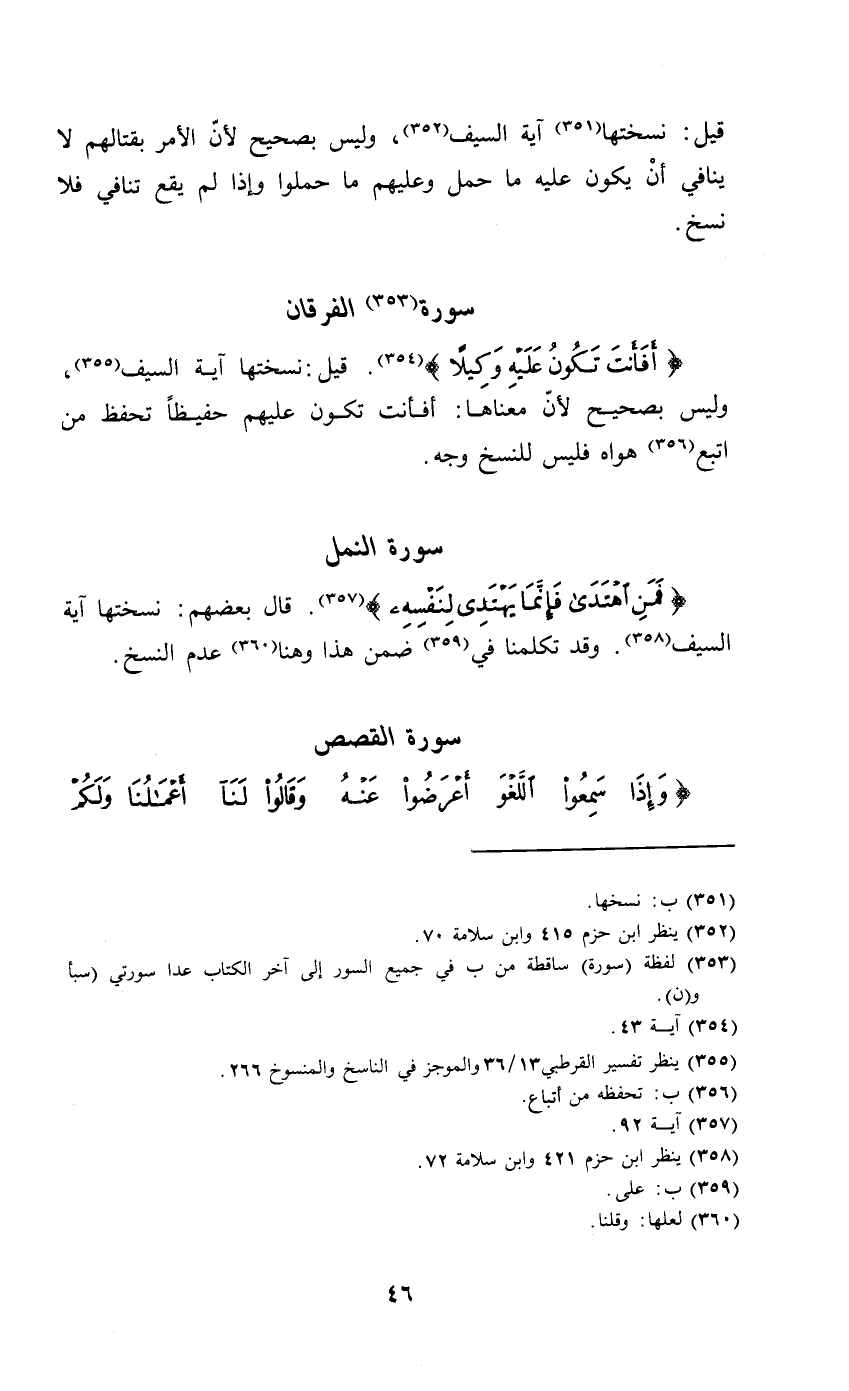 قيل: نسختها(٣٥١) آية السيف(٣٥٢)، وليس بصحيح لأنّ الأمر بقتالهم لا
ينافي أنْ يكون عليه ما حمل وعليهم ما حملوا وإذا لم يقع تنافي فلا
نسخ.
سورة(٣٥٣) الفرقان
﴿ أَفَأَنتَ تَكُونُ عَلَيْهِ وَكِيلًا ﴾(٣٥٤). قيل: نسختها آية السيف(٣٥٥)،
وليس بصحيح لأنّ معناها: أفأنت تكون عليهم حفيظاً تحفظ من
اتبع(٣٥٦) هواه فليس للنسخ وجه.
سورة النمل
﴿ فَمَنِ ٱهْتَدَىٰ فَإِنَّمَا يَهْتَدِى لِنَفْسِهِۦ ﴾(٣٥٧). قال بعضهم: نسختها آية
السيف(٣٥٨). وقد تكلمنا في(٣٥٩) ضمن هذا وهنا(٣٦٠) عدم النسخ.
سورة القصص
﴿ وَإِذَا سَمِعُوا۟ ٱللَّغْوَ أَعْرَضُوا۟ عَنْهُ وَقَالُوا۟ لَنَآ أَعْمَـٰلُنَا وَلَكُمْ
(٣٥١) ب: نسخها.
(٣٥٢) ينظر ابن حزم ٤١٥ وابن سلامة ٧٠.
(٣٥٣) لفظة (سورة) ساقطة من ب في جميع السور إلى آخر الكتاب عدا سورتي (سبأ
و(ن).
(٣٥٤) آية ٤٣.
(٣٥٥) ينظر تفسير القرطبي ١٣/٣٦ والموجز في الناسخ والمنسوخ ٢٦٦.
(٣٥٦) ب: تحفظه من أتباع.
(٣٥٧) آية ٩٢.
(٣٥٨) ينظر ابن حزم ٤٢١ وابن سلامة ٧٢.
(٣٥٩) ب: على.
(٣٦٠) لعلها: وقلنا.
٤٦